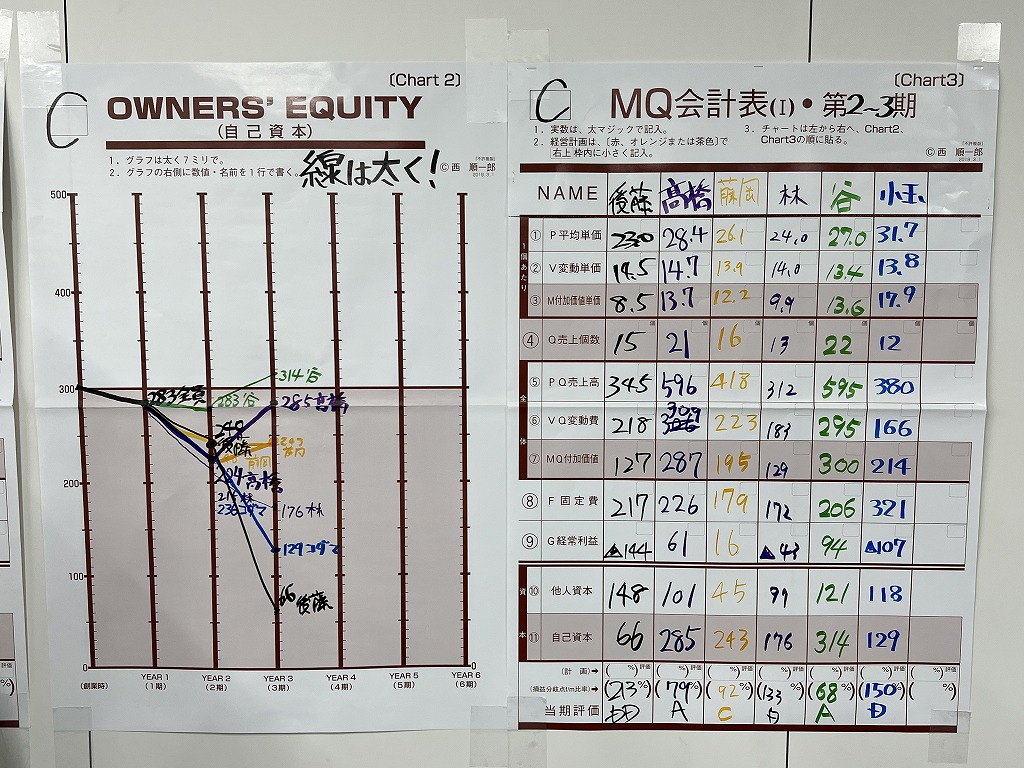 C
〔Chart 2〕
OWNERS' EQUITY
(自己資本)
1．グラフは太く7ミリで。
2．グラフの右側に数値・名前を1行で書く。
線は太く!
© 西 順一郎
500
400
300
200
100
0
0
283全員
283谷
314谷
285高橋
後藤
243
藤岡
高橋
236コダマ
176林
129コダマ
66後藤
(創業時)
YEAR 1
(1期)
YEAR 2
(2期)
YEAR 3
(3期)
YEAR 4
(4期)
YEAR 5
(5期)
YEAR 6
(6期)
C
〔Chart3〕
MQ会計表(I)・第2~3期
1．実数は、太マジックで記入。
2．経営計画は、〔赤、オレンジまたは茶色〕で
右上 枠内に小さく記入。
3．チャートは左から右へ、Chart2、
Chart3の順に貼る。
© 西 順一郎
NAME 後藤 高橋 藤岡 林 谷 小玉
1個あたり
① P平均単価 23.0 28.4 26.1 24.0 27.0 31.7
② V変動単価 14.5 14.7 13.9 14.0 13.4 13.8
③ M付加価値単価 8.5 13.7 12.2 9.9 13.6 17.9
④ Q売上個数 15 21 16 13 22 12
全体
⑤ PQ売上高 345 596 418 312 595 380
⑥ VQ変動費 218 309 223 183 295 166
⑦ MQ付加価値 127 287 195 129 300 214
⑧ F固定費 217 226 179 172 206 321
⑨ G経常利益 ▲144 61 16 ▲43 94 ▲107
資本
⑩ 他人資本 148 101 45 99 121 118
⑪ 自己資本 66 285 243 176 314 129
(計画)→ ( %)評価 ( %)評価 ( %)評価 ( %)評価 ( %)評価 ( %)評価 ( %)評価
(損益分岐点f/m比率)→ (213%) (79%) (92%) (133%) (68%) (150%) ( %)
当期評価 A C A D